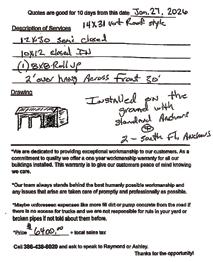 Quotes are good for 10 days from this date Jan. 27, 2026
14x31 vert Roof style
Description of Services
12x30 Semi closed
10x12 closed IN
(1) 8x8 Roll up
2' over hang Across front 30'
Drawing
Installed on the
ground with
standard Anchors
2 - South Fla Anchors
*We are dedicated to providing exceptional workmanship to our customers. As a
commitment to quality we offer a one year workmanship warranty for all our
buildings installed. This warranty is to give our customers peace of mind knowing
we care.
*Our team always stands behind the best humanly possible workmanship and
any issues that arise are taken care of promptly and professionally as possible.
*Maybe unforeseen expenses like more fill dirt or pump concrete from the road if
there is no access for trucks and we are not responsible for ruts in your yard or
broken pipes if not told about them before.
*Price $6400.00 + local sales tax
Call 386-438-0020 and ask to speak to Raymond or Ashley.
Thanks for the opportunity!